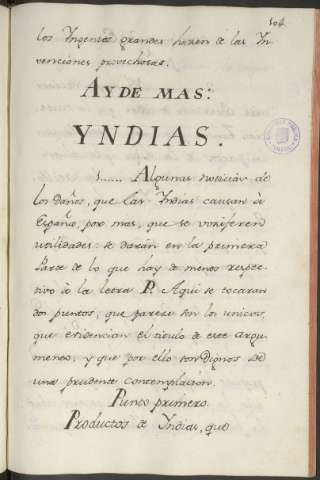 104
los Ingenios grandes hacen de las In
venciones provechosas.
AY DE MAS:
YNDIAS.
1...... Algunas noticias de
los Daños, que las Indias causan à
España, por mas, que se vosiferen
utilidades: se daràn en la primera
Parte de lo que hay de menos respec-
tivo à la letra P. Aqui se tocaran
dos puntos, que parese son los unicos,
que evidencian el titulo de este argu
mento, y que por ello son Dignos de
una prudente contemplacion.
Punto primero.
Productos de Yndias, que